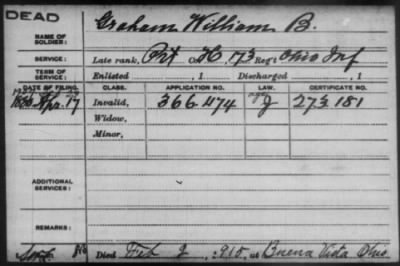 DEAD
NAME OF SOLDIER: Graham, William B.
SERVICE: Late rank, Pvt Co. H, 173 Reg't Ohio Inf
TERM OF SERVICE: Enlisted , 1 Discharged , 1
DATE OF FILING. CLASS. APPLICATION NO. LAW. CERTIFICATE NO.
1880 Apr. 17 Invalid, 366 474 G 273 181
Widow,
Minor,
ADDITIONAL SERVICES:
REMARKS:
Died Feb 2, 1915, at Buena Vista Ohio.